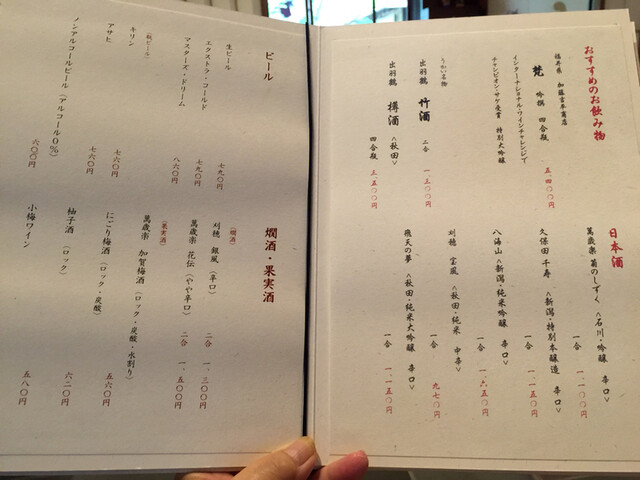 おすすめのお飲み物
福井県 加藤吉平商店
梵 吟撰 四合瓶 五、四〇〇円
インターナショナル・ワインチャレンジで
チャンピオン・サケ受賞 特別大吟醸
うかい名物
出羽鶴 竹酒 二合 一、三〇〇円
出羽鶴 樽酒 <秋田> 四合瓶 三、五〇〇円
日本酒
萬歳楽 菊のしずく <石川・吟醸 辛口>
一合 一、一〇〇円
久保田 千寿 <新潟・特別本醸造 辛口>
一合 一、一五〇円
八海山 <新潟・純米吟醸 辛口>
一合 一、六五〇円
刈穂 宝風 <秋田・純米 中辛>
一合 九七〇円
飛天の夢 <秋田・純米大吟醸 辛口>
一合 一、一五〇円
ビール
生ビール
エクストラ・コールド 七九〇円
マスターズ・ドリーム 八六〇円
(瓶ビール)
キリン 七六〇円
アサヒ 七六〇円
ノンアルコールビール (アルコール0%) 六〇〇円
燗酒・果実酒
(燗酒)
刈穂 銀風 (辛口) 二合 一、三〇〇円
萬歳楽 花伝 (やや辛口) 二合 一、五〇〇円
(果実酒)
萬歳楽 加賀梅酒 (ロック・炭酸・水割り)
にごり梅酒 (ロック・炭酸) 五六〇円
柚子酒 (ロック) 六二〇円
小梅ワイン 五八〇円